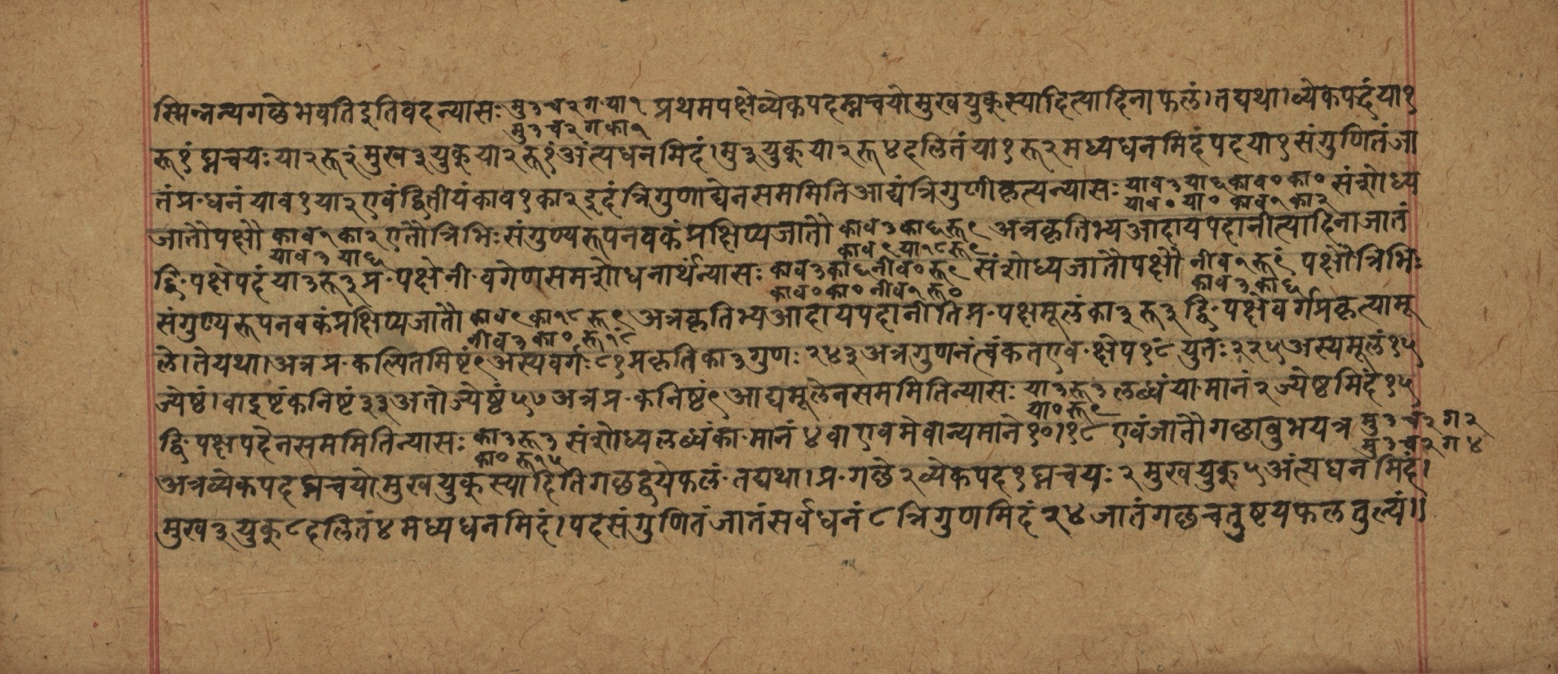 स्मिन्नन्यगछेभवतिइतिवदन्यासः मु३च२ग·या१ प्रथमपक्षेव्येकपदघ्नचयोमुखयुक्स्यादित्यादिनाफलं।तद्यथा।व्येकंपदंया१
मु३च२गका१
रू१ं घ्नचयःया२रू२ंमुख३युक्या२रू१अंत्यधनमिदं।मु३युक्या२रू४दलितंया१रू२मध्यधनमिदंपदया१संगुणितंजा
तंप्र·धनंयाव१या२एवंद्वितीयंकाव१का२इदंत्रिगुणाद्येनसममितिआद्यंत्रिगुणीकृत्यन्यासः याव३या६काव०का० संशोध्य
याव०या०काव१का२
जातौपक्षौ काव१का२ एतौत्रिभिःसंगुण्यरूपनवकंप्रक्षिप्यजातौ काव३का६रू९ अत्रकृतिभ्यआदायपदानीत्यादिनाजातं
याव३या६ काव९या१८रू९
द्वि·पक्षेपदंया३रू३प्र·पक्षेनी·वर्गेणसमशोधनार्थंन्यासः काव३का६नीव०रू९ संशोध्यजातौपक्षौ नीव१रू९ं पक्षौत्रिभिः
काव०का०नीव१रू० काव३का६
संगुण्यरूपनवकंप्रक्षिप्यजातौ काव९का१८रू९ अत्रकृतिभ्यआदायपदानीतिप्र·पक्षमूलंका३रू३द्वि·पक्षेवर्गप्रकृत्यामू
नीव३का०रू१८ं
ले।तेयथा।अत्रप्र·कल्पितमिष्टं९अस्यवर्गः८१प्रकृतिका३गुणः२४३अत्रगुणनंत्वंकतएव·क्षेप१८ंयुतः२२५अस्यमूलं१५
ज्येष्ठं।वाइष्टंकनिष्टं३३अतोज्येष्ठं५७अत्रप्र·कनिष्टं९आद्यमूलेनसममितिन्यासः या३रू३ लब्धंया·मानं२ज्येष्टमिदं१५
या०रू९
द्वि·पक्षपदेनसममितिन्यासः का३रू३ संशोध्यलब्धंका·मानं४वाएवमेवान्यमाने१०।१८एवंजातौगछावुभयत्र मु३च२ग२
का०रू१५ मु३च२ग४
अत्रव्येकपदघ्नचयोमुखयुक्स्यादितिगछद्वयेफलं·तद्यथा।प्र·गछे२व्येकपद१घ्नचयः२मुखयुक्५अंत्यधनमिदं।
मुख३युक्८दलितं४मध्यधनमिदं।पदसंगुणितंजातंसर्वधनं८त्रिगुणमिदं२४जातंगछचतुष्टयफलतुल्यं॥